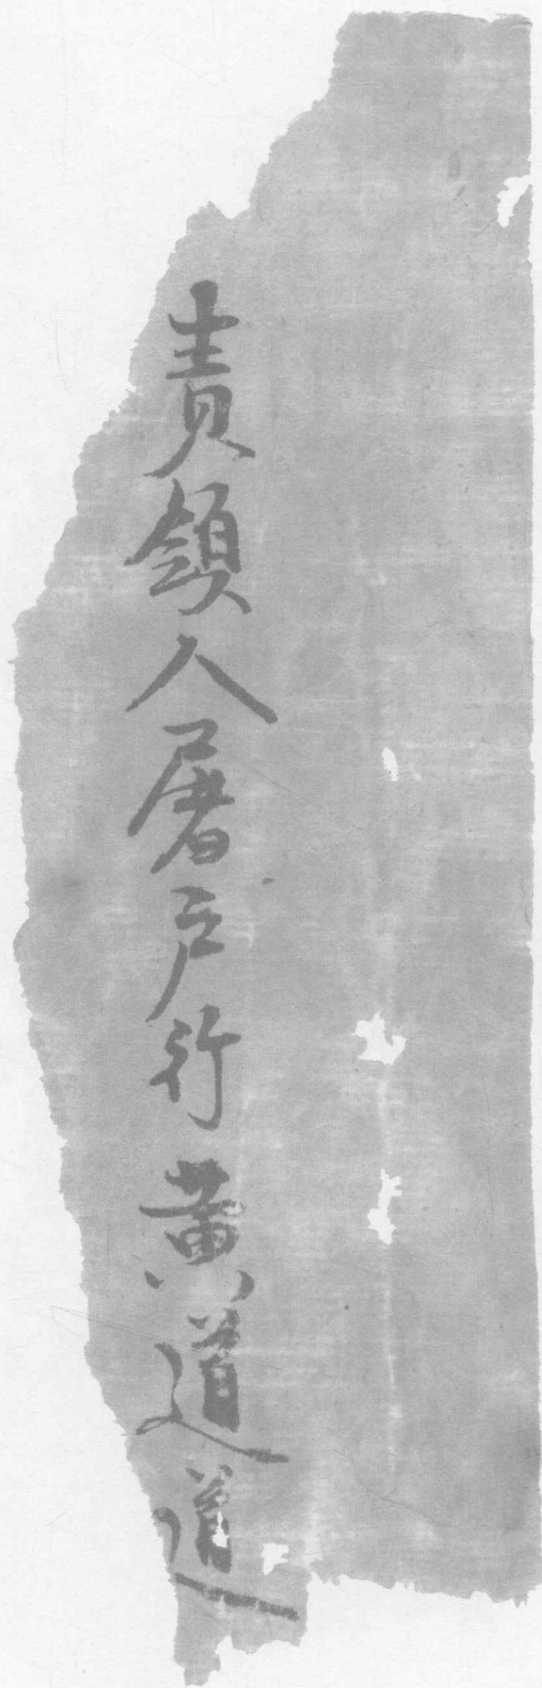 責領人屠戶行黃道道